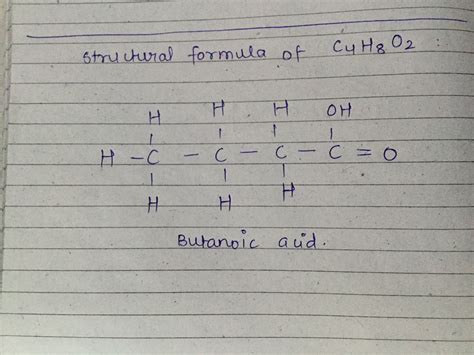 Structural formula of C4H8O2 :
H H H OH
H - C - C - C - C = O
H H H
Butanoic acid.